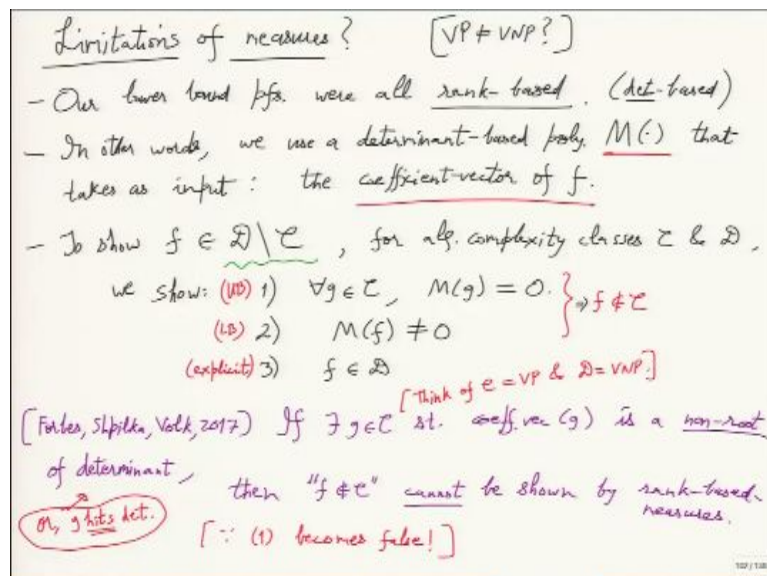 Limitations of measures? [VP ≠ VNP?]
- Our lower bound pfs. were all rank-based. (det-based)
- In other words, we use a determinant-based poly. M(·) that
takes as input: the coefficient-vector of f.
- To show f ∈ D\C, for alg. complexity classes C & D,
we show: (UB) 1) ∀g ∈ C, M(g) = 0. } ⇒ f ∉ C
(LB) 2) M(f) ≠ 0
(explicit) 3) f ∈ D
[Think of C = VP & D = VNP.]
[Forbes, Shpilka, Volk, 2017) If ∃ g ∈ C st. coeff.vec(g) is a non-root
of determinant,
then "f ∉ C" cannot be shown by rank-based-
measures.
or, g hits det.
[∵ (1) becomes false!]